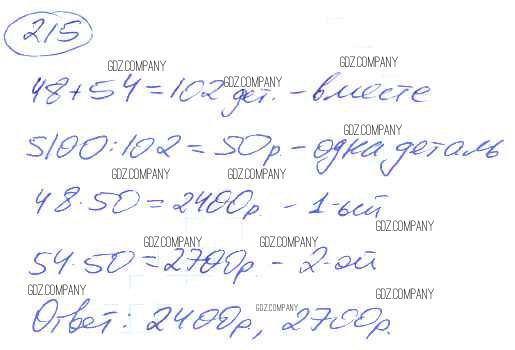 215
GDZ.COMPANY GDZ.COMPANY
48+54=102 дет. - вместе
GDZ.COMPANY
GDZ.COMPANY
5100:102=50р. - одна деталь
GDZ.COMPANY GDZ.COMPANY
48·50=2400р. - 1-ый
GDZ.COMPANY
GDZ.COMPANY GDZ.COMPANY
54·50=2700р. - 2-ой
GDZ.COMPANY GDZ.COMPANY
GDZ.COMPANY
Ответ: 2400р, 2700р.